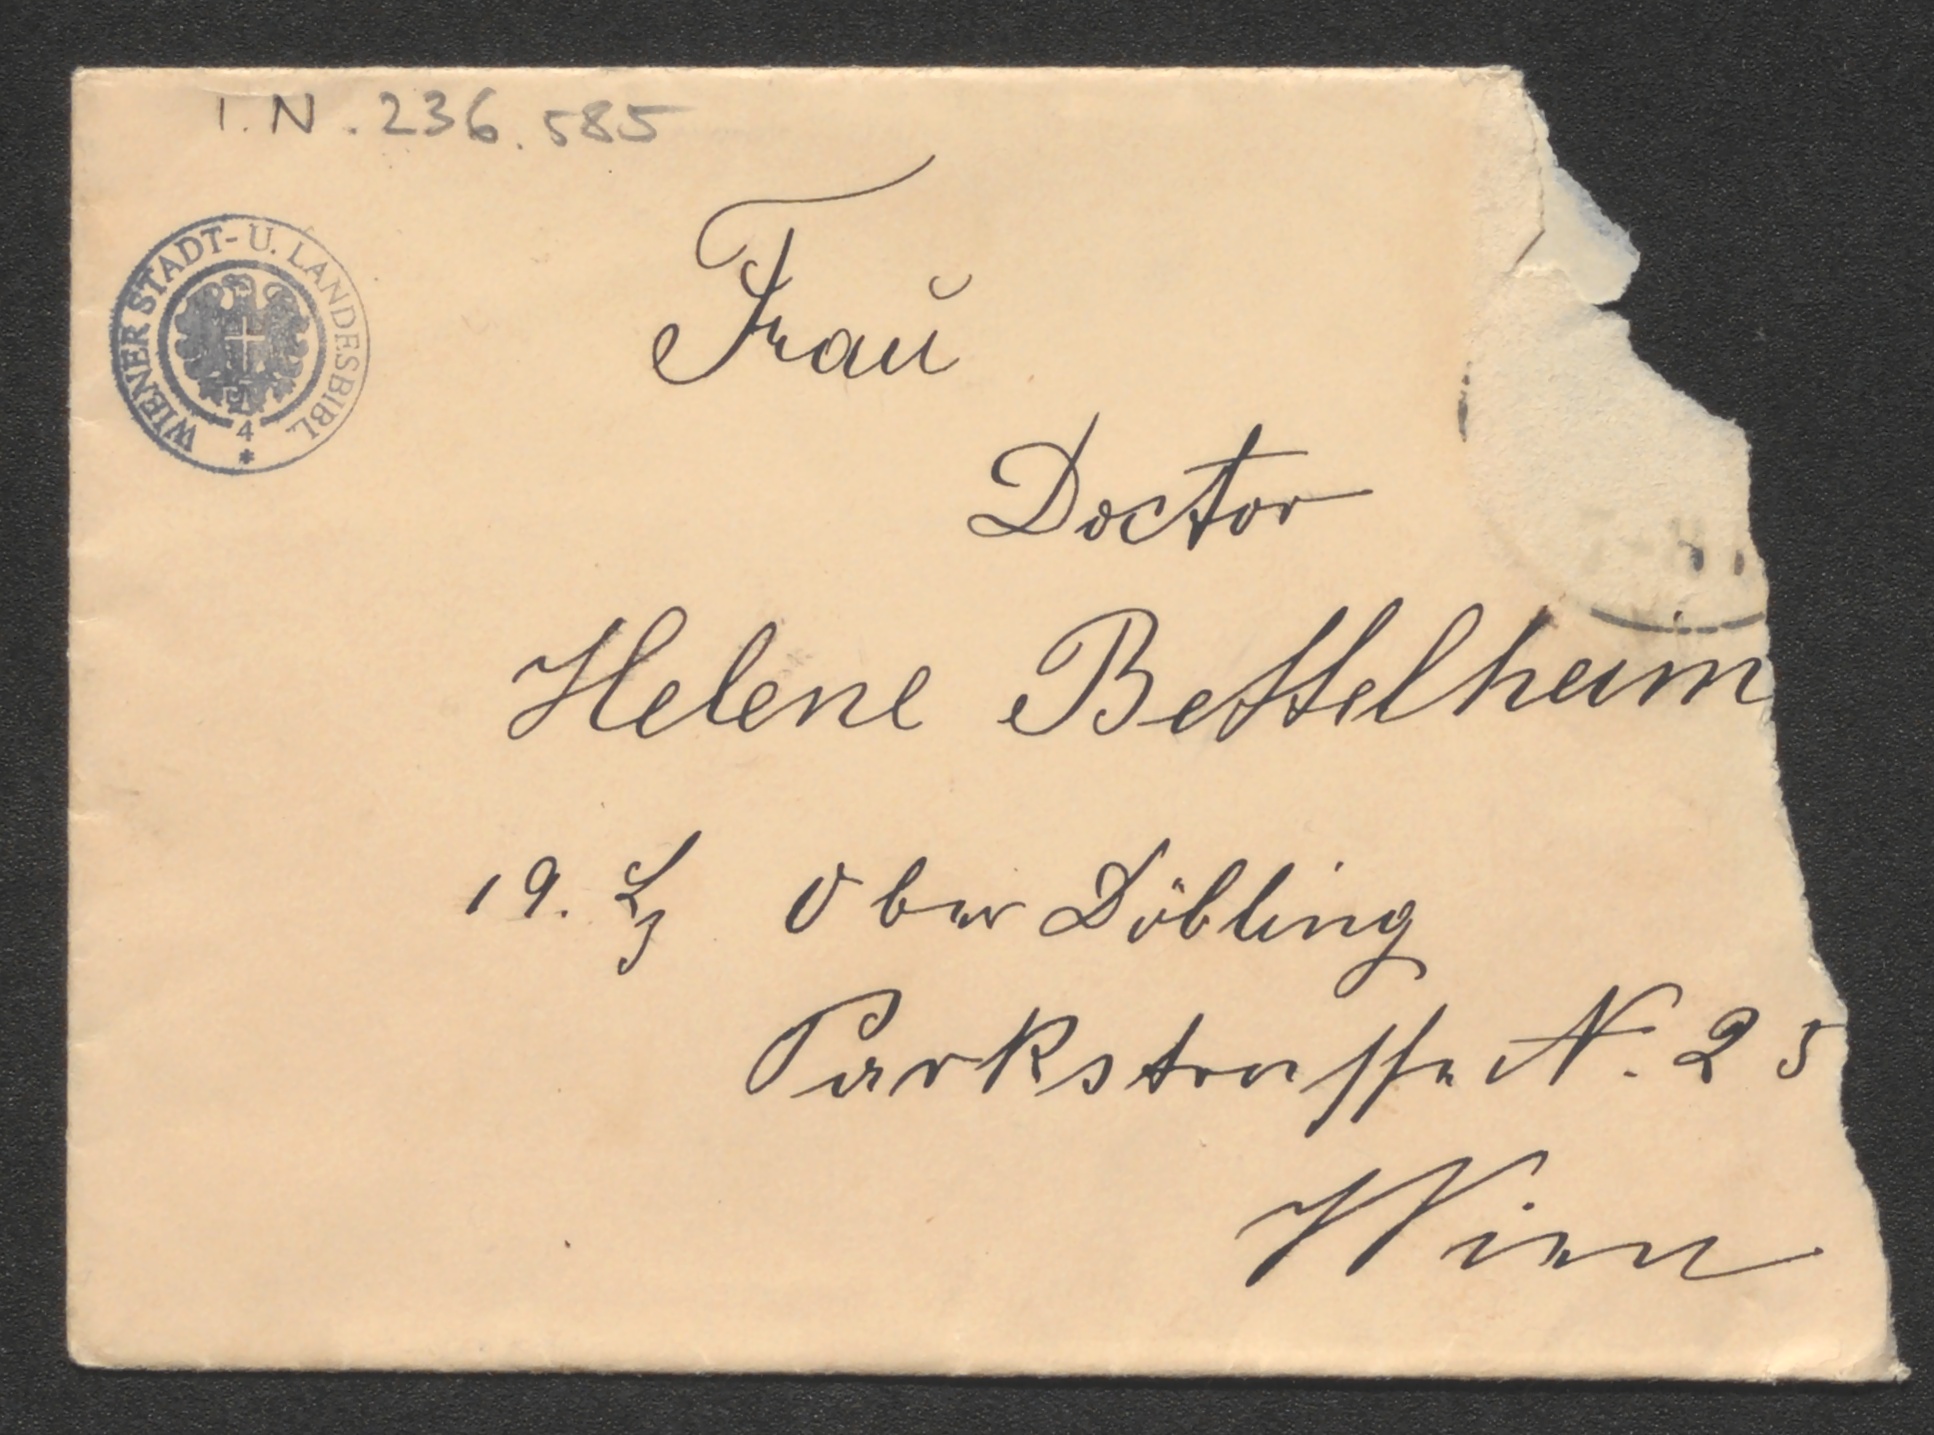 I.N. 236.585
WIENER STADT- U. LANDESBIBL.
4
Frau
Doctor
Helene Bettelheim
19. Bz Ober Döbling
Parkstrasse N. 25
Wien